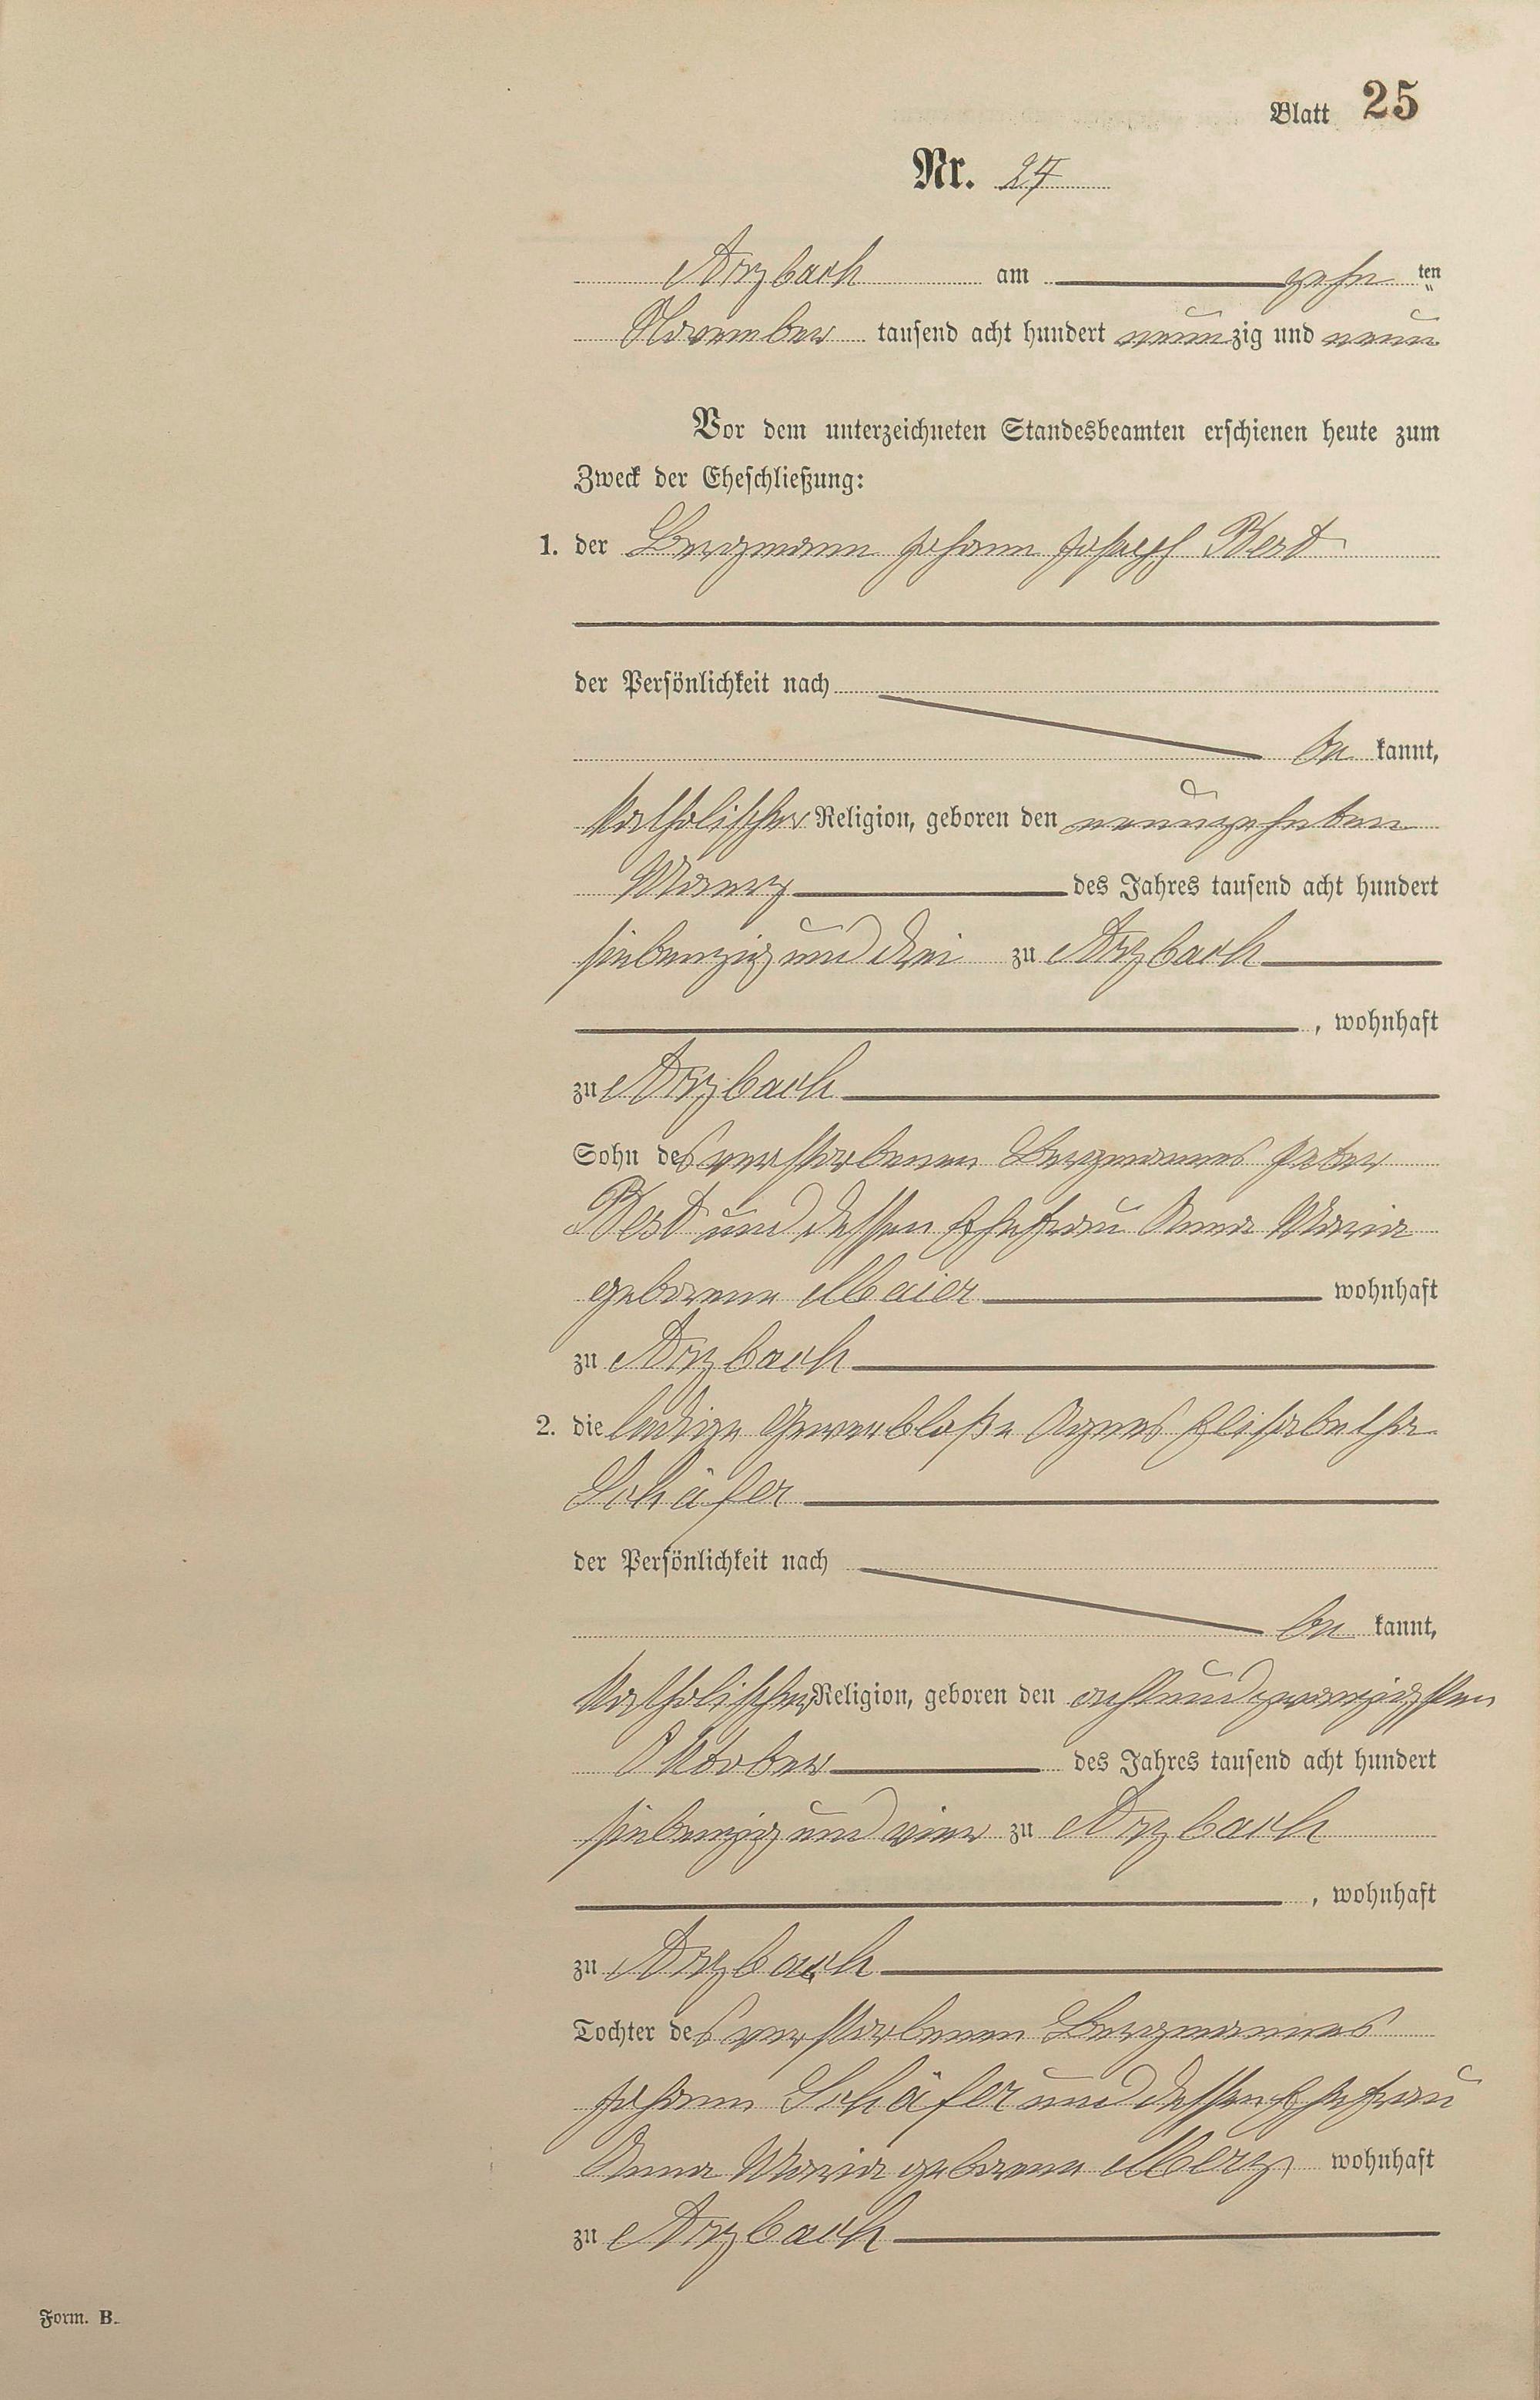 Blatt 25
Nr. 24
Arzbach am zehn ten
November tausend acht hundert neunzig und neun
Vor dem unterzeichneten Standesbeamten erschienen heute zum
Zweck der Eheschließung:
1. der Bergmann Johann Joseph Best
der Persönlichkeit nach
be kannt,
katholischer Religion, geboren den neunzehnten
Maerz des Jahres tausend acht hundert
siebenzig und drei zu Arzbach
, wohnhaft
zu Arzbach
Sohn des verstorbenen Bergmannes Peter
Best und dessen Ehefrau Anna Maria
geborene Maier wohnhaft
zu Arzbach
2. die ledige Gewerbloße Agnes Elisabetha
Schäfer
der Persönlichkeit nach
be kannt,
katholischer Religion, geboren den achtundzwanzigsten
Oktober des Jahres tausend acht hundert
siebenzig und vier zu Arzbach
, wohnhaft
zu Arzbach
Tochter des verstorbenen Bergmannes
Johann Schäfer und dessen Ehefrau
Anna Maria geborene Merz wohnhaft
zu Arzbach
Form. B.